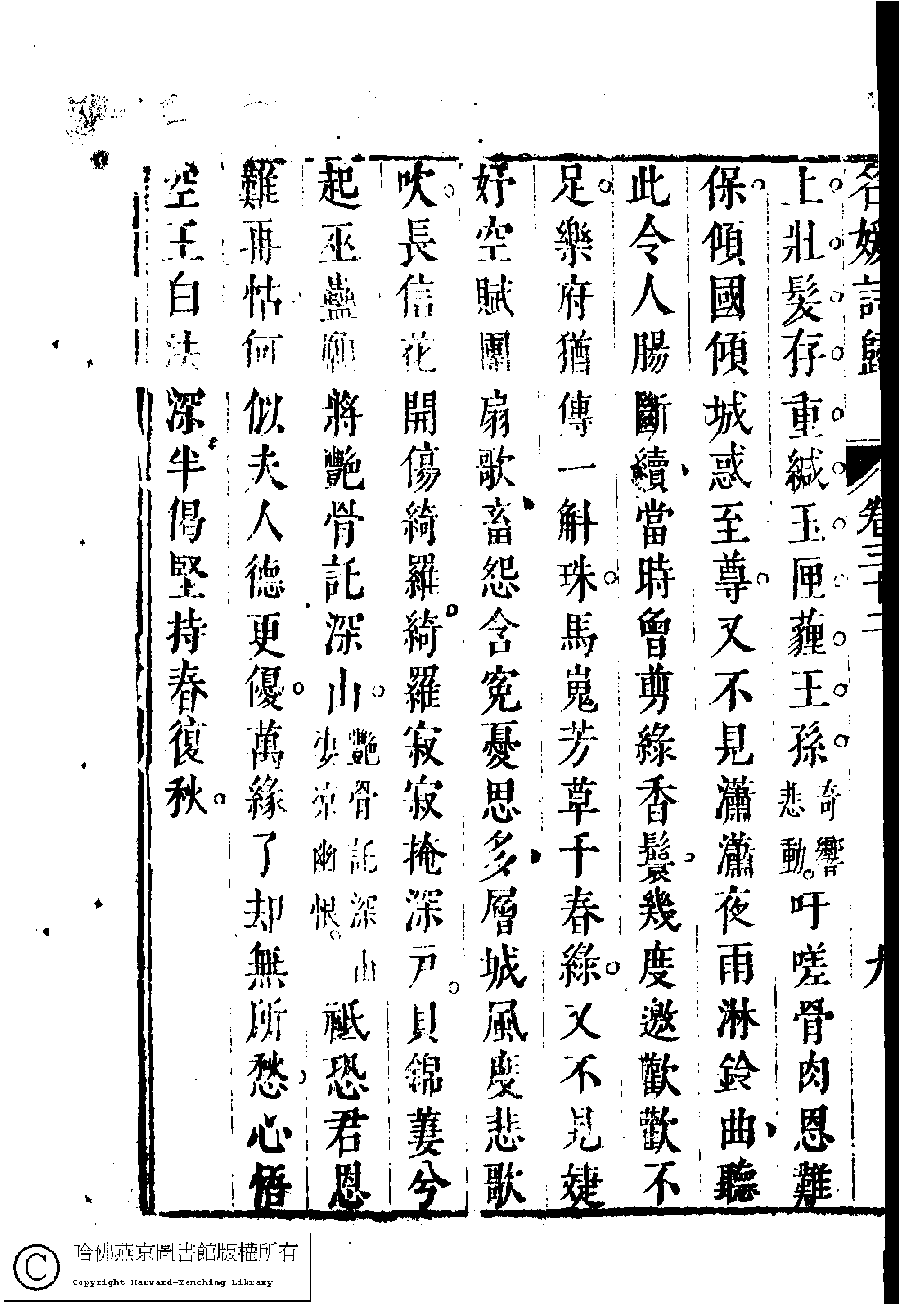 名媛詩歸 卷三十二 九
上壯髮存重緘玉匣薶王孫奇響悲動吁嗟骨肉恩難
保傾國傾城惑至尊又不見瀟瀟夜雨淋鈴曲聽
此令人腸斷續當時曾剪綠香鬟幾度邀歡歡不
足樂府猶傳一斛珠馬嵬芳草千春綠又不見婕
妤空賦團扇歌畜怨含寃憂思多層城風度悲歌
吹長信花開傷綺羅綺羅寂寂掩深戸貝錦萋兮
起巫蠱願將艷骨託深山艷骨託深山悽凉幽恨祗恐君恩
難再怙何似夫人德更優萬緣了却無所愁心悟
空王白法深半偈堅持春復秋
哈佛燕京圖書館版權所有
Copyright Harvard-Yenching Library